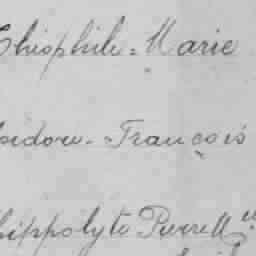 Théophile=Marie
Isidore=François
Hippolyte Pierre M